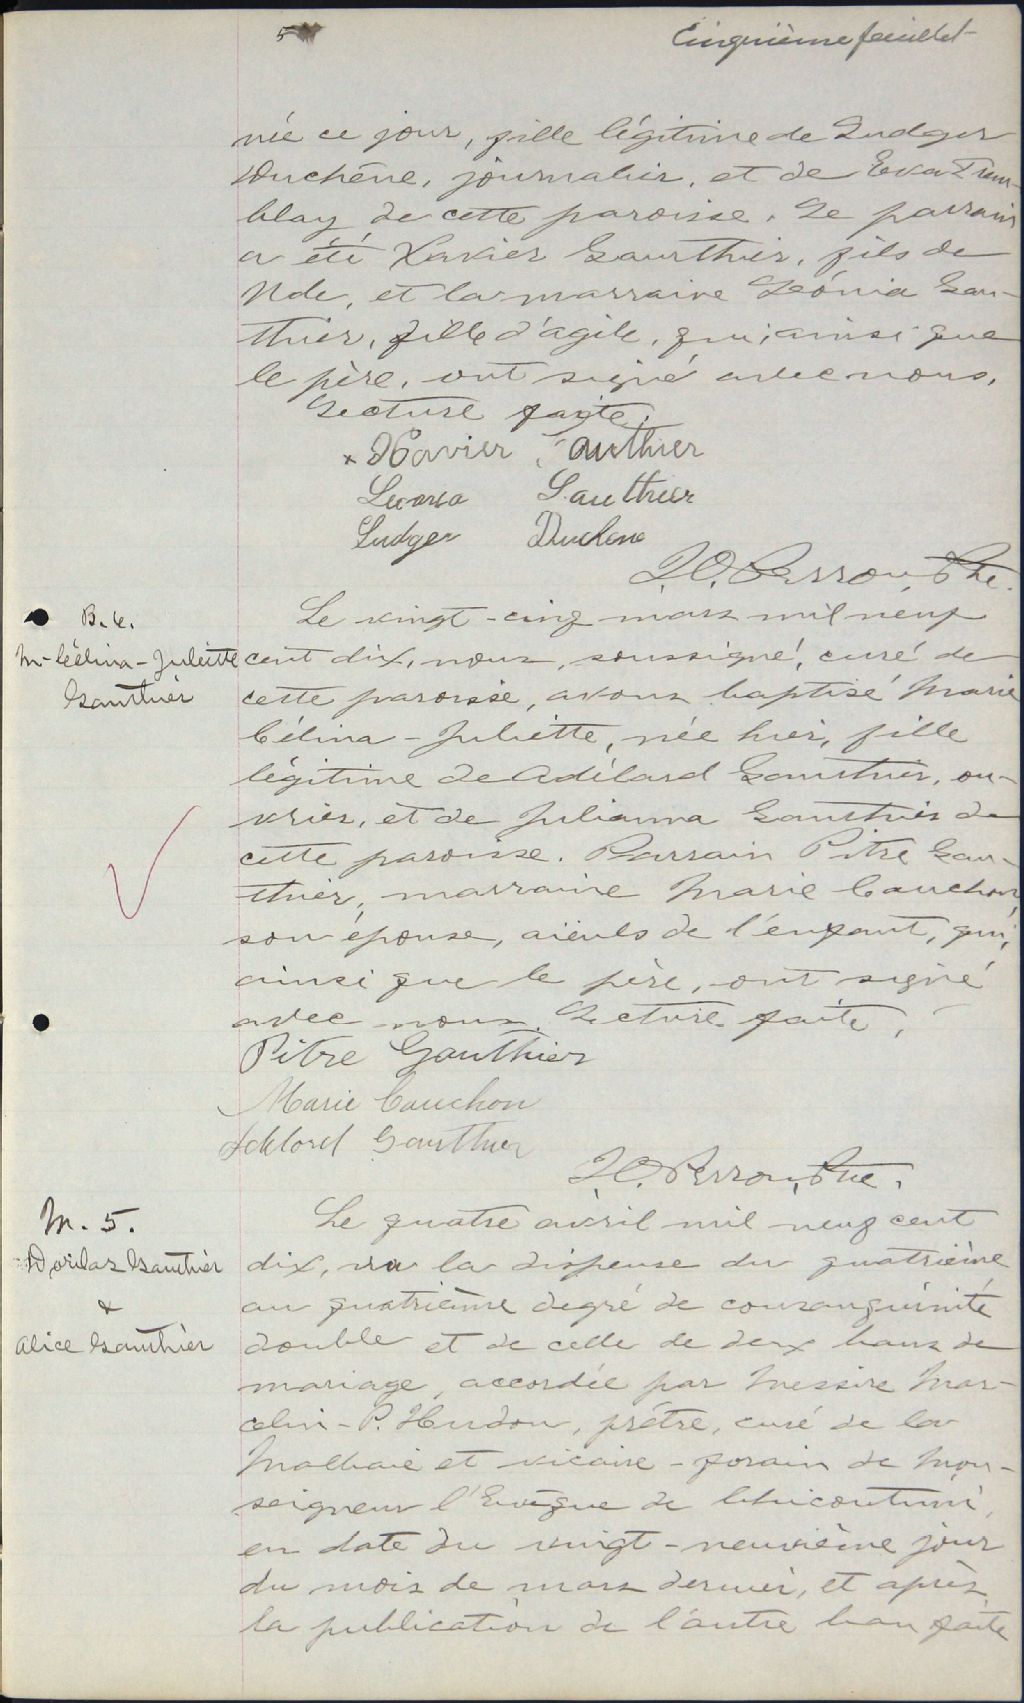 5
Cinquième feuillet
née ce jour, fille légitime de Ludger
Duchêne, journalier, et de Eva Trem-
blay de cette paroisse. Le parrain
a été Xavier Gauthier, fils de
Nde, et la marraine Léónia Gau-
thier, fille d'agile, qui, ainsi que
le père, ont signé avec nous.
Lecture faite.
x Xavier Gauthier
Gauthier
Ludger Duchene
J.O. Perron, Ptre.
B. 4.
M-Célina-Juliette
Gauthier
Le vingt-cinq mars mil neuf
cent dix, nous, soussigné, curé de
cette paroisse, avons baptisé Marie
Célina-Juliette, née hier, fille
légitime de Adélard Gauthier, ou-
vrier, et de Julianna Gauthier de
cette paroisse. Parrain Pitre Gau-
thier, marraine Marie Cauchon,
son épouse, aïeuls de l'enfant, qui,
ainsi que le père, ont signé
avec nous. Lecture faite.
Pitre Gauthier
Marie Cauchon
Gauthier
J.O. Perron, Ptre.
M. 5.
Dorilas Gauthier
&
Alice Gauthier
Le quatre avril mil neuf cent
dix, vu la dispense du quatrième
au quatrième degré de consanguinité
double et de celle de deux bans de
mariage, accordée par Messire Mar-
celin-P. Hudon, prêtre, curé de la
Malbaie et vicaire-forain de Mon-
seigneur l'Evêque de Chicoutimi,
en date du vingt-neuvième jour
du mois de mars dernier, et après
la publication de l'autre ban faite